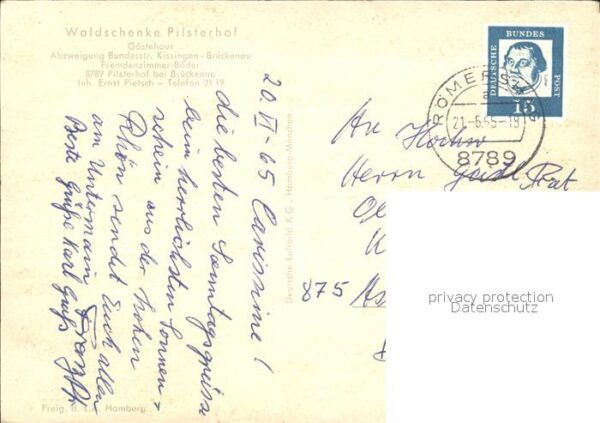 Waldschenke Pilsterhof
Gästehaus
Abzweigung Bundesstr. Kissingen - Brückenau
Fremdenzimmer - Bäder
8789 Pilsterhof bei Brückenau
Inh. Ernst Pietsch - Telefon 21 19
20. VI - 65 Carissime!
die besten Sonntagsgrüsse
beim herrlichsten Sonnen-
schein aus der hohen
Rhön sendet Euch allen
am Untermain
Beste Grüße Karl
Deutsche Luftbild K.G., Hamburg-München
Freig. B. L. A. Hamburg
DEUTSCHE BUNDES POST
15
RÖMERSHAG
21.-6.65-19
8789
An Hochw
Herrn Geistl. Rat
875 As
privacy protection
Datenschutz